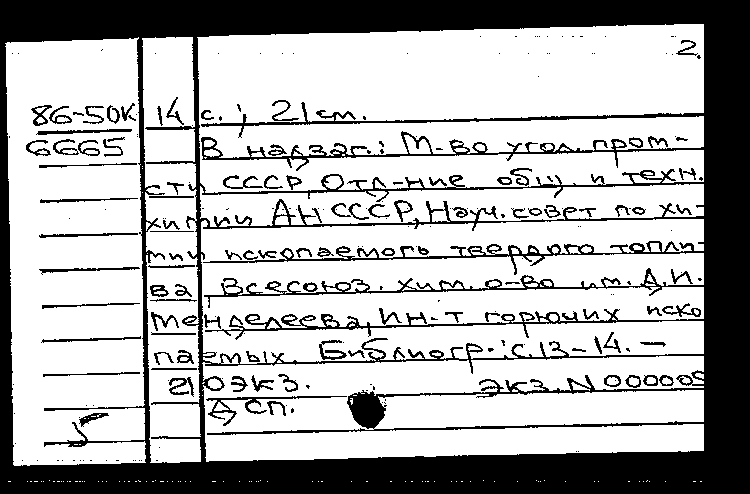 2.
86-50К 14 с.; 21 см.
6665 В надзаг.: М-во угол. пром-
сти СССР, Отд-ние общ. и техн.
химии АН СССР, Науч. совет по хи-
мии ископаемого твердого топли-
ва, Всесоюз. хим. о-во им. Д.И.
Менделеева, Ин-т горючих иско
паемых. Библиогр.: с. 13-14. —
210 экз. Экз. N 000005
Д сп.
5